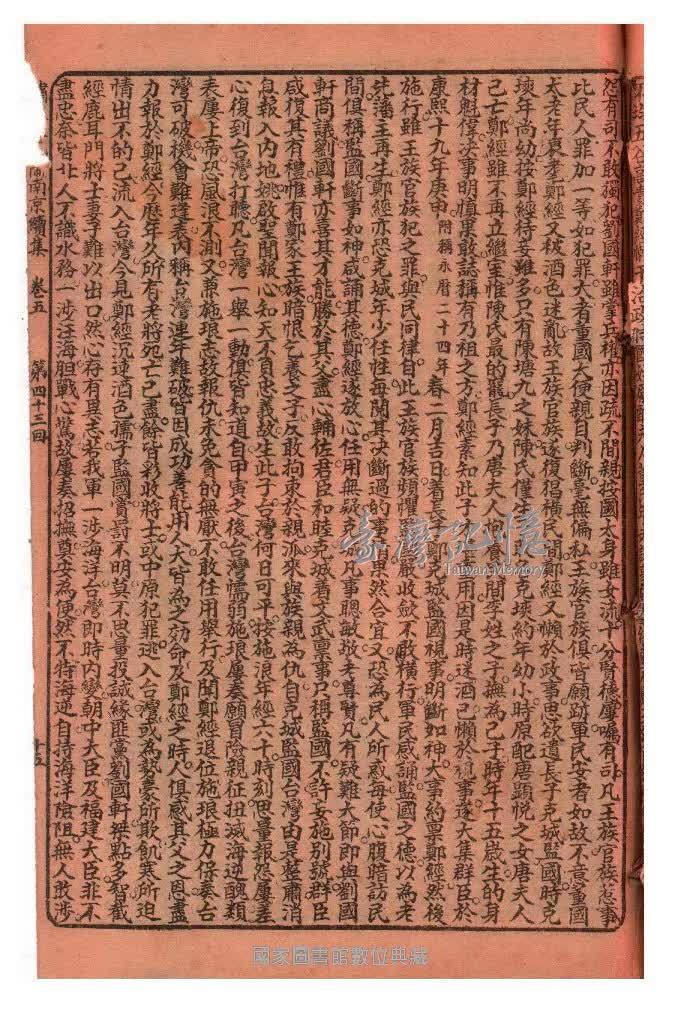 怨有司不敢獨犯劉國軒雖掌兵權亦因疏不間親按國太身雖女流十分賢德屢囑有司凡王族官族惹事
比民人罪加一等如犯罪大者董國太便親自判斷毫無偏私王族官族俱皆願跡軍民安者如故不意董國
太老年衰孝鄭經又被酒色迷亂故王族官族遂復猖橫民間鄭經又懶於政事思欲遣長子克𡒉監國時克
𡒉年尚幼按鄭經侍妾雖多只有陳塘九之妹陳氏僅生一子克𡒉約年幼小時原配唐顯悅之女唐夫人
己亡鄭經雖不再立繼室惟陳氏最的寵長子乃唐夫人
間李姓之子撫為己子時年十五歲生的身
材魁偉決事明慎果敢誌稱有乃祖之方鄭經素知此子
用因是時迷酒己懶於
事遂大集群臣於
康熙十九年庚申附稱永曆二十四年春二月吉日着長子鄭克𡒉監國視事明斷如神大事約稟鄭經然後
施行雖王族官族犯之罪與民同律自此王族官族頻懼
嚴收斂不敢橫行軍民咸誦監國之德以為老
藩主再生鄭經亦恐克𡒉年少任性每閱其决斷過的事果然合宜又恐為民人所惑每使心腹暗訪民
間俱稱監國斷事如神咸誦其德鄭經遂放心任用無疑克𡒉凡事聰敏敬老尊賢凡有疑難大節即與劉國
軒商議劉國軒亦喜其才能勝於其父盡心輔佐君臣和睦克𡒉着文武稟事只稱監國不許妄施別號群臣
咸復其有禮惟有鄭家王族暗恨乞養之子反敢拘束於親派來與族親為仇自克𡒉監國台灣由是整肅消
息報入內地姚啟聖聞報心知天不負忠義故生此子台灣何日可平按施浪年經六十時刻思量報怨屢差
心復到台灣打聽凡台灣一舉一動俱皆知道自甲寅之後台灣懦弱施琅屢奏願冒險親征扭滅海逆醜類
表屢上帝恐風浪不測又兼施琅志故報仇未免貪的無厭不敢任用舉行及聞鄭經退位施琅極力保奏台
灣可破機會難逢表內稱台灣連年難破皆因成功善能用人大皆為之効命及鄭經之時人俱感其父之恩盡
力報於鄭經今歷年久所有老將宛亡己盡餘皆彩收將士或中原犯罪逃入台灣或為勢豪所欺飢寒所迫
情出不的己流入台灣今見鄭經沉迷酒色孺子監國賞罰不明莫不思量投誠緣匪黨劉國軒無點多智截
經鹿耳門將士妻子難以出口然心存有異志若我軍一涉海洋台灣即時內變朝中大臣及福建大臣非不
盡忠奈皆北人不識水務一涉汪海胆戰心驚故屢奏招撫奠安為便然不特海逆自持海洋險阻無人敢涉
閩南京續集 卷五 第四十三回 十五
臺灣記憶
Taiwan Memory
國家圖書館數位典藏